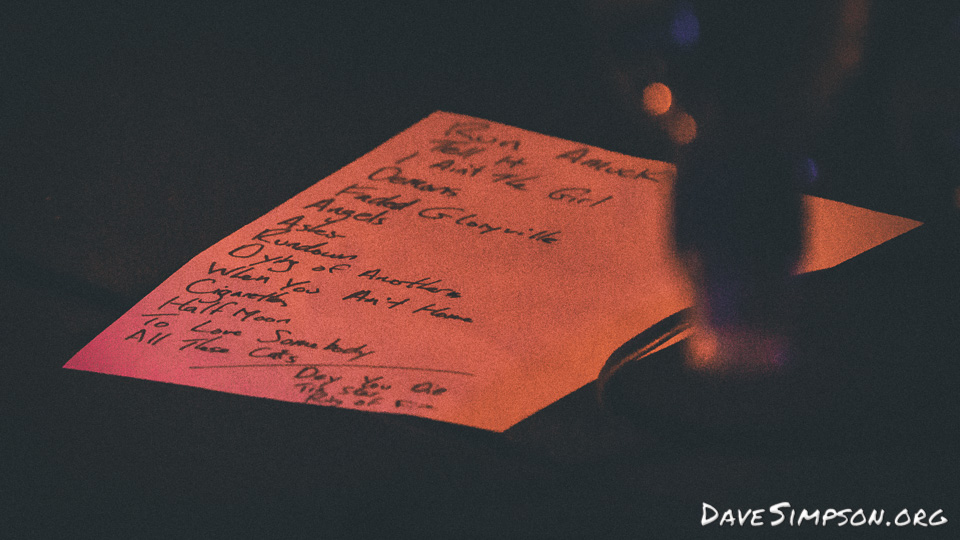 Run Amuck
Tell It
I Ain't the Girl
Demons
Faded Gloryville
Angels
Ashes
Rundown
Dying of Another
When You Ain't Home
Cigarettes
Half Moon
To Love Somebody
All These Cats
Day You Die
Ring of Fire
DaveSimpson.org